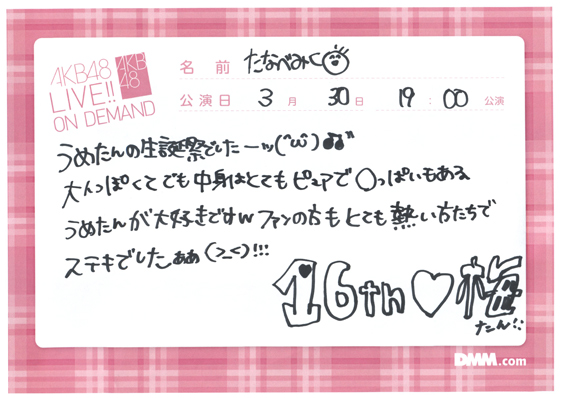 AKB48
LIVE!!
ON DEMAND
AKB
48
名前 たなべみく
公演日 3月 30日 19:00 公演
うめたんの生誕祭でしたーッ(^ω^)♫
大人っぽくてでも中身はとてもピュアで〇っぱいもある
うめたんが大好きですwファンの方もとても熱い方たちで
ステキでしたぁぁ(>_<)!!!
16th♡梅
たん!!
DMM.com